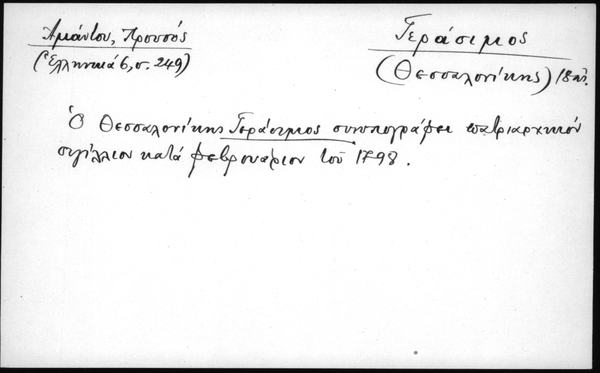 Ἀμάντου, Προυσός
(Ἑλληνικά 6, σ. 249)
Γεράσιμος
(Θεσσαλονίκης) 18 αἰ.
Ὁ Θεσσαλονίκης Γεράσιμος συνυπογράφει πατριαρχικόν
σιγίλλιον κατά φεβρουάριον τοῦ 1798.